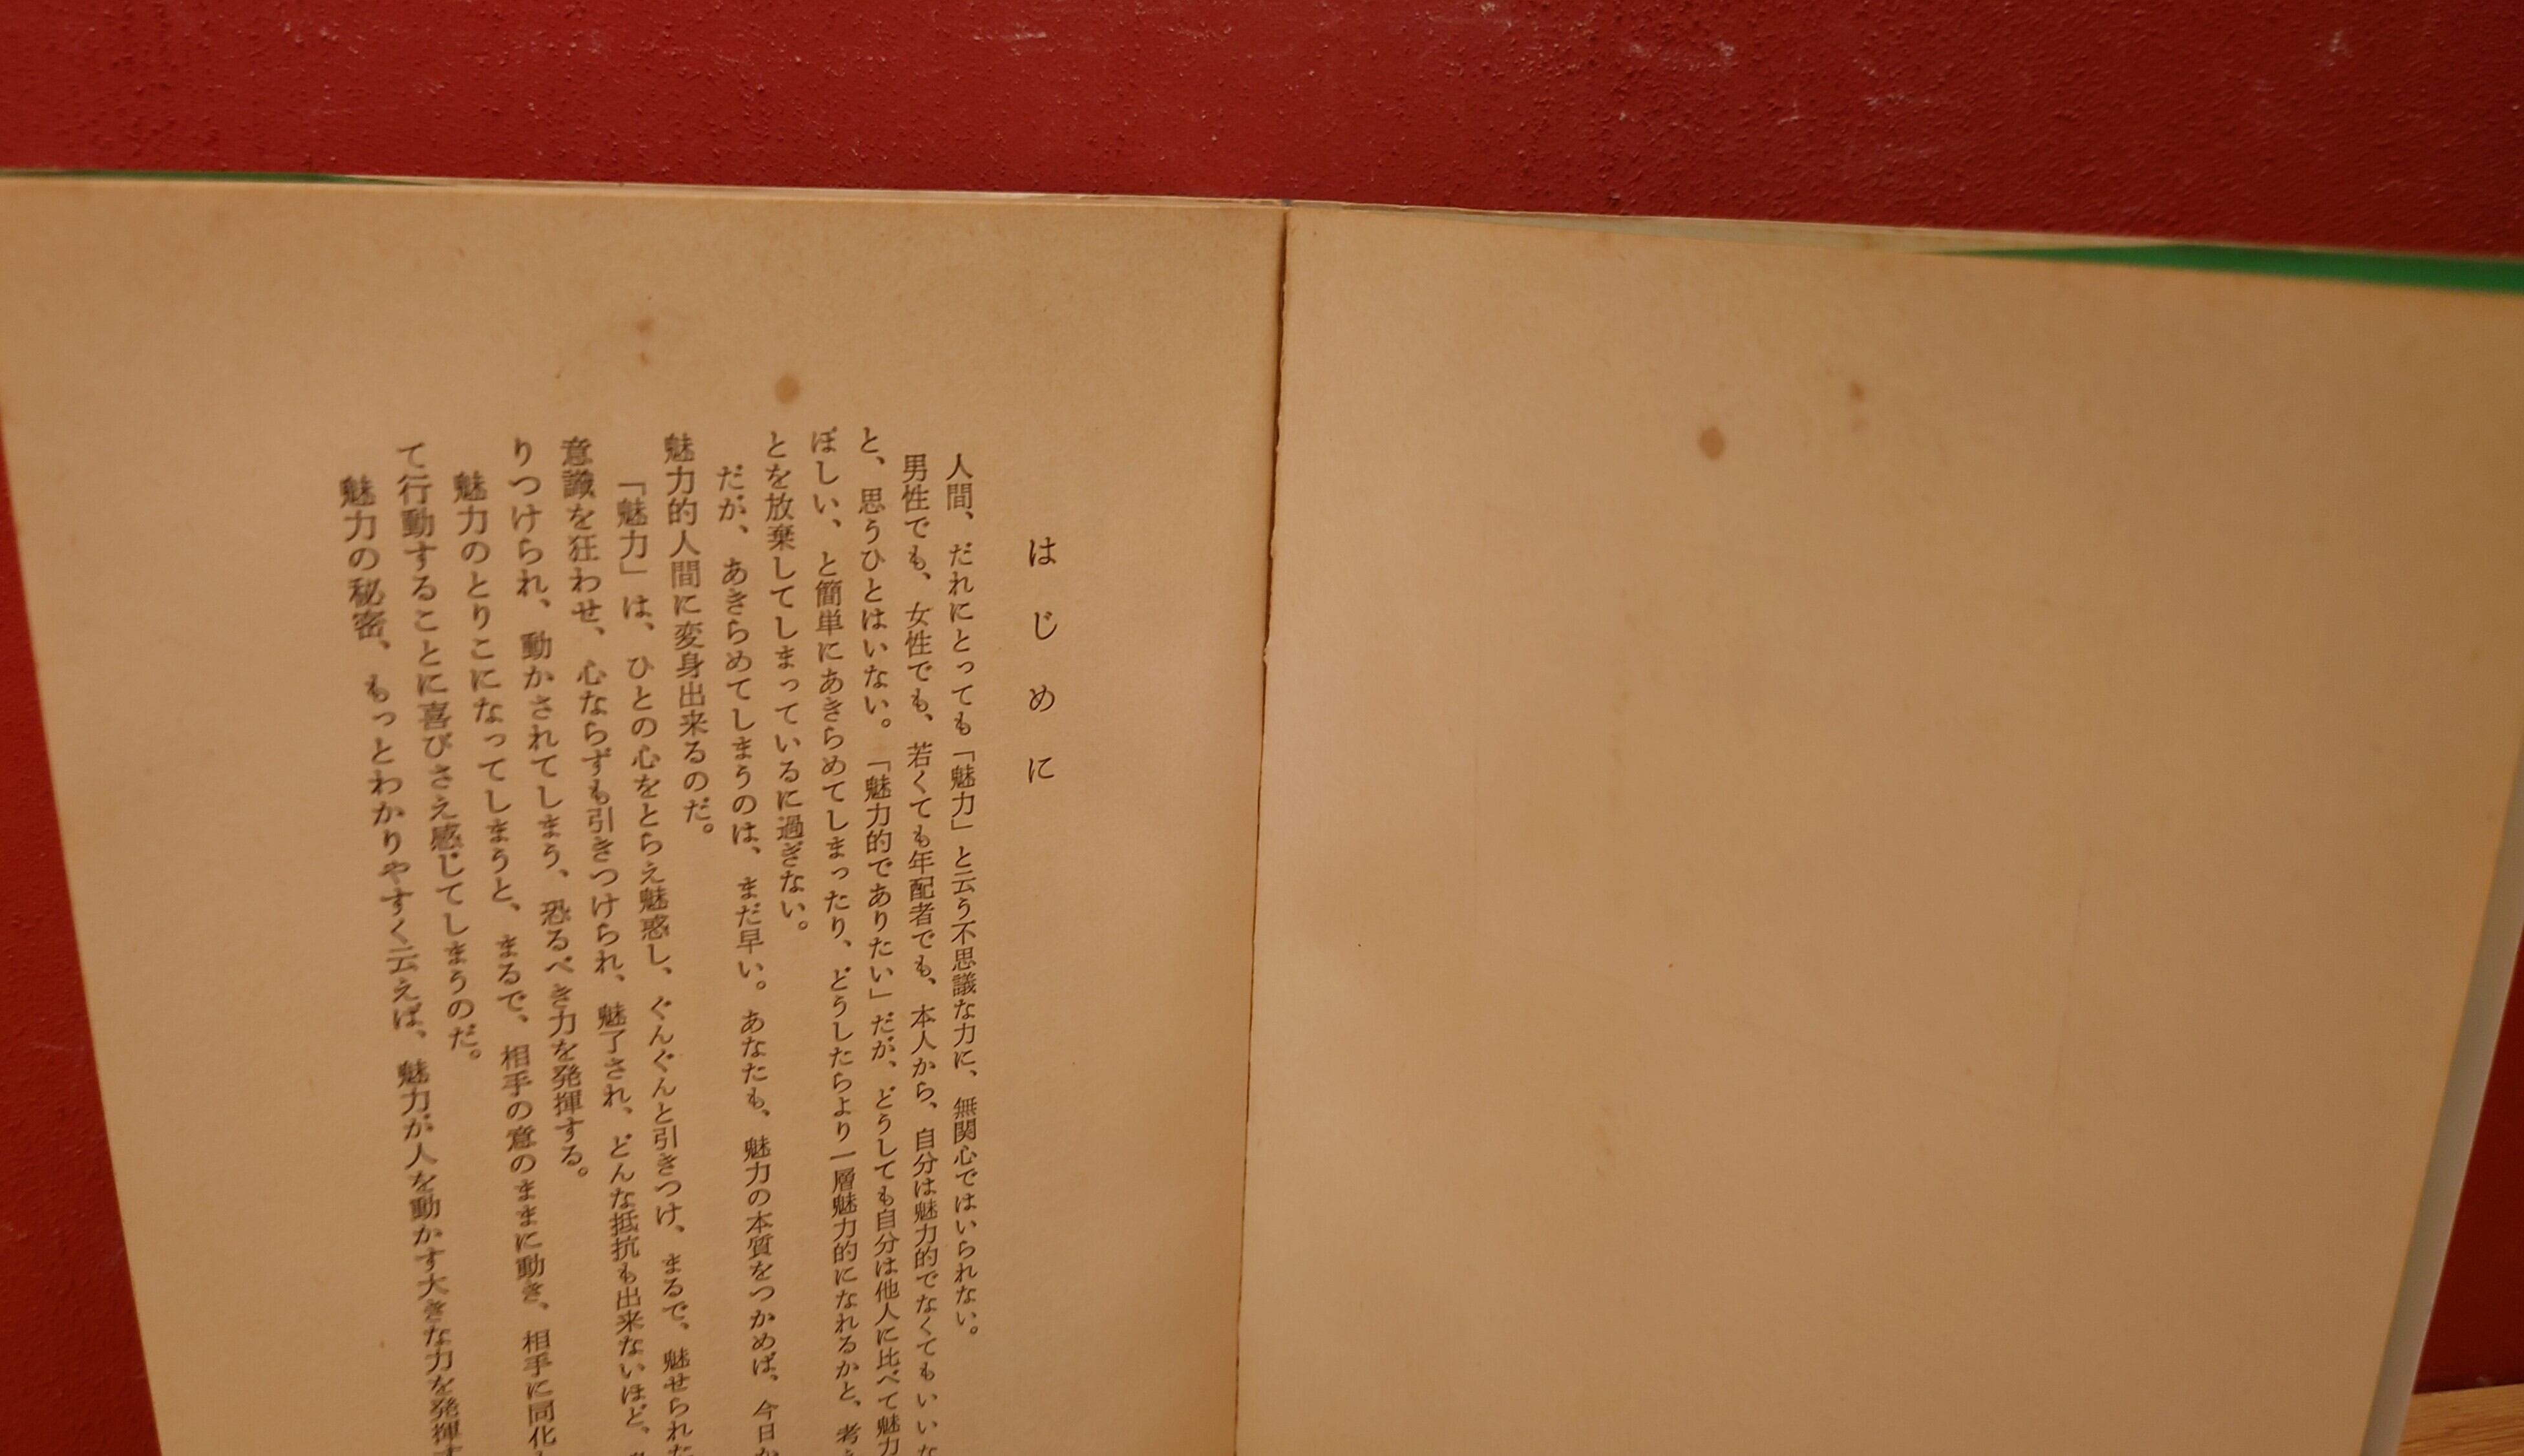 はじめに
人間、だれにとっても「魅力」と云う不思議な力に、無関心ではいられない。
男性でも、女性でも、若くても年配者でも、本人から、自分は魅力的でなくてもいいな
と、思うひとはいない。「魅力的でありたい」だが、どうしても自分は他人に比べて魅力
ぼしい、と簡単にあきらめてしまったり、どうしたらより一層魅力的になれるかと、考
とを放棄してしまっているに過ぎない。
だが、あきらめてしまうのは、まだ早い。あなたも、魅力の本質をつかめば、今日か
魅力的人間に変身出来るのだ。
「魅力」は、ひとの心をとらえ魅惑し、ぐんぐんと引きつけ、まるで、魅せられた
意識を狂わせ、心ならずも引きつけられ、魅了され、どんな抵抗も出来ないほど、
りつけられ、動かされてしまう、恐るべき力を発揮する。
魅力のとりこになってしまうと、まるで、相手の意のままに動き、相手に同化
て行動することに喜びさえ感じてしまうのだ。
魅力の秘密、もっとわかりやすく云えば、魅力が人を動かす大きな力を発揮す